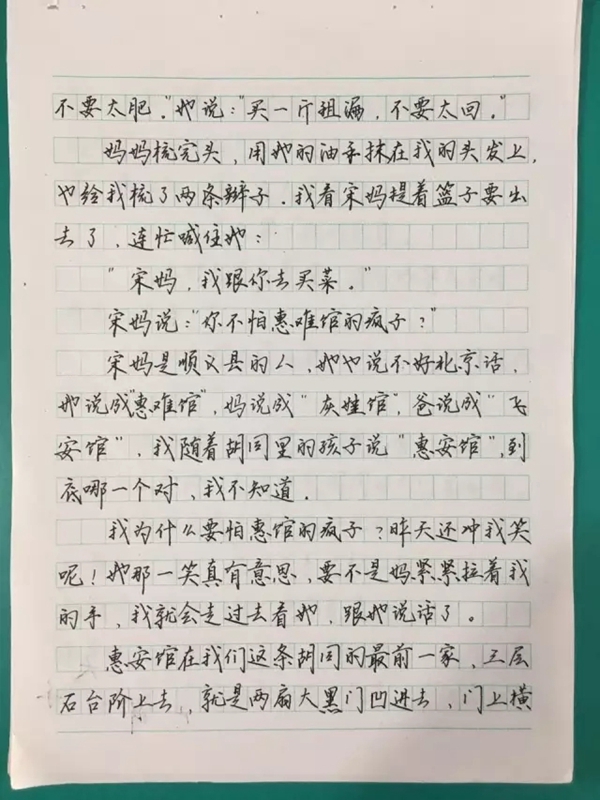 不要太肥。"她说:"买一斤租漏,不要太回。"
妈妈梳完头,用她的油手抹在我的头发上,
也给我梳了两条辫子。我看宋妈提着篮子要出
去了,连忙喊住她:
"宋妈,我跟你去买菜。"
宋妈说:"你不怕惠难馆的疯子?"
宋妈是顺义县的人,她也说不好北京话,
她说成"惠难馆",妈说成"灰娃馆",爸说成"飞
安馆",我随着胡同里的孩子说"惠安馆",到
底哪一个对,我不知道。
我为什么要怕惠馆的疯子?昨天还冲我笑
呢!她那一笑真有意思,要不是妈紧紧拉着我
的手,我就会走过去看她,跟她说话了。
惠安馆在我们这条胡同的最前一家,三层
石台阶上去,就是两扇大黑门凹进去,门上横